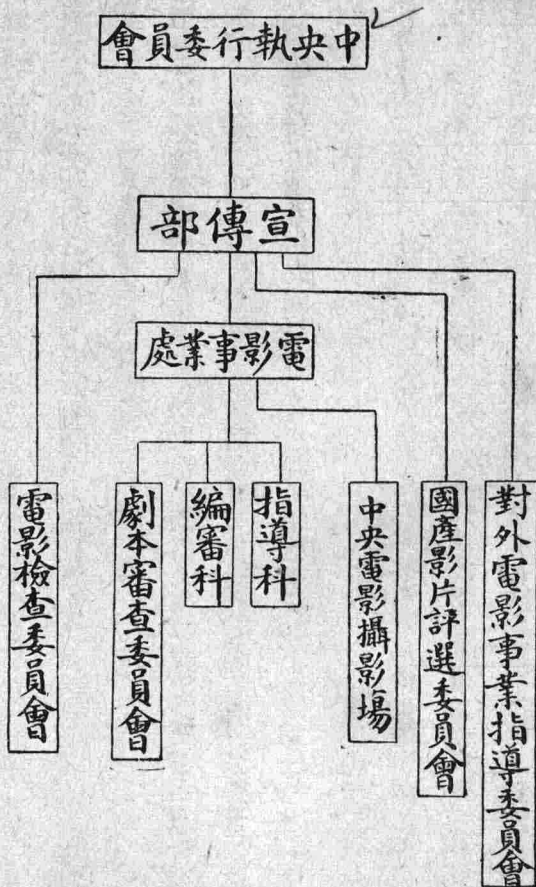 中央執行委員會
宣傳部
電影事業處
對外電影事業指導委員會
國產影片評選委員會
中央電影攝影場
指導科
編審科
劇本審查委員會
電影檢查委員會